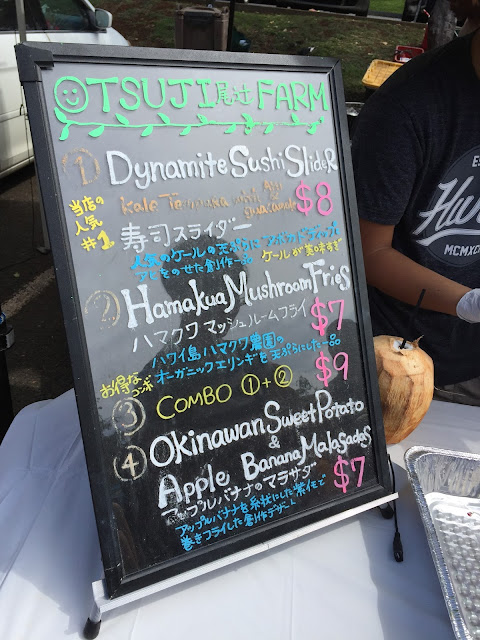 OTSUJI 尾辻 FARM
① Dynamite Sushi SlideR
Kale Tempura with Ahi
& guacamole
$8
当店の
人気
#1
寿司スライダー
人気のケールの天ぷらに
アヒをのせた創作一品 ケールが美味すぎ
② Hamakua Mushroom Fries
ハマクワマッシュルームフライ
$7
ハワイ島ハマクワ農園の
オーガニックエリンギを天ぷらにした一品
お得な
③ COMBO ①+②
$9
④ Okinawan Sweet Potato
&
Apple Banana Malasadas
アップルバナナのマラサダ
$7
アップルバナナを
巻きフライした創作デザート
MCMXC